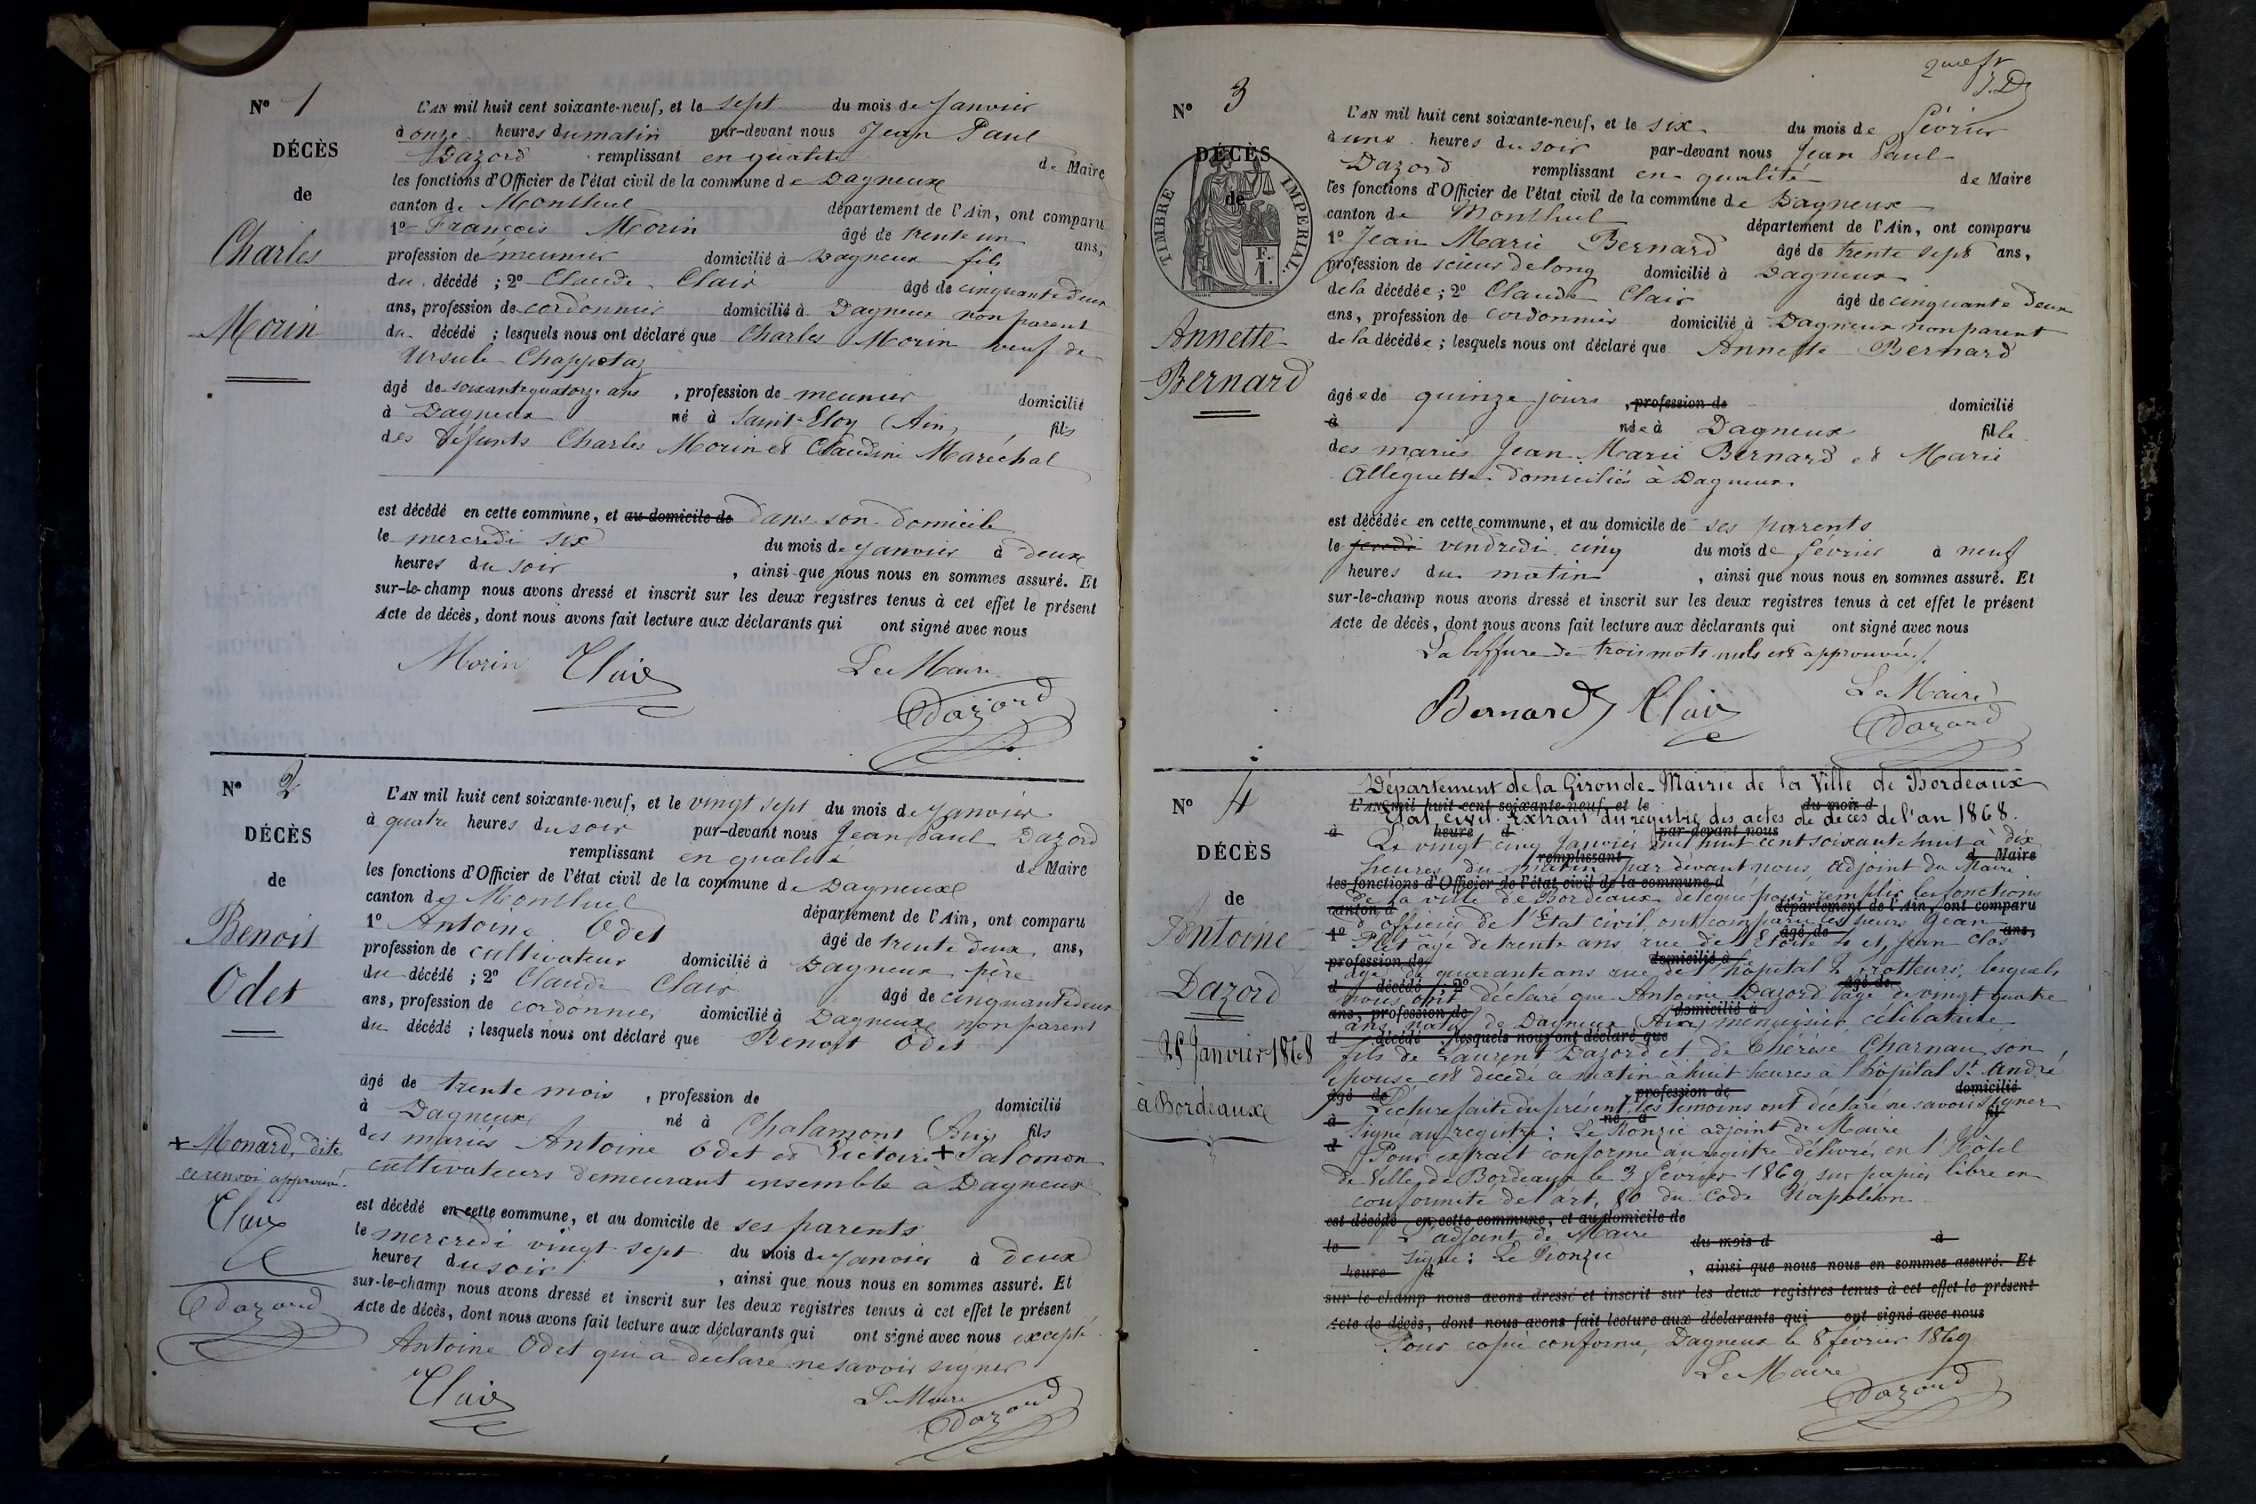 N° 1
DÉCÈS
de
Charles
Morin
L'AN mil huit cent soixante-neuf, et le sept du mois de Janvier
à onze heures du matin par-devant nous Jean Paul
Dazord remplissant en qualité de Maire
les fonctions d'Officier de l'état civil de la commune de Dagneux
canton de Montluel département de l'Ain, ont comparu
1° François Morin âgé de trente un ans,
profession de meunier domicilié à Dagneux fils
du décédé ; 2° Claude Clair âgé de cinquante deux
ans, profession de cordonnier domicilié à Dagneux non parent
du décédé ; lesquels nous ont déclaré que Charles Morin veuf de
Ursule Chappotaz
âgé de soixante quatorze ans , profession de meunier domicilié
à Dagneux né à Saint-Eloy (Ain) fils
des défunts Charles Morin et Claudine Maréchal
est décédé en cette commune, et au domicile de dans son domicile
le mercredi six du mois de janvier à deux
heures du soir , ainsi que nous nous en sommes assuré. Et
sur-le-champ nous avons dressé et inscrit sur les deux registres tenus à cet effet le présent
Acte de décès, dont nous avons fait lecture aux déclarants qui ont signé avec nous
Morin Clair Le Maire
Dazord
N° 2
DÉCÈS
de
Benoit
Odet
+ Monard, dite
ce renvoi approuvé.
Clair
Dazord
L'AN mil huit cent soixante-neuf, et le vingt sept du mois de janvier
à quatre heures du soir par-devant nous Jean Paul Dazord
remplissant en qualité de Maire
les fonctions d'Officier de l'état civil de la commune de Dagneux
canton de Montluel département de l'Ain, ont comparu
1° Antoine Odet âgé de trente deux ans,
profession de cultivateur domicilié à Dagneux père
du décédé ; 2° Claude Clair âgé de cinquante deux
ans, profession de cordonnier domicilié à Dagneux non parent
du décédé ; lesquels nous ont déclaré que Benoit Odet
âgé de trente mois , profession de domicilié
à Dagneux né à Chalamont (Ain) fils
des mariés Antoine Odet et Victoire + Salomon
cultivateurs demeurant ensemble à Dagneux
est décédé en cette commune, et au domicile de ses parents
le mercredi vingt sept du mois de janvier à deux
heures du soir , ainsi que nous nous en sommes assuré. Et
sur-le-champ nous avons dressé et inscrit sur les deux registres tenus à cet effet le présent
Acte de décès, dont nous avons fait lecture aux déclarants qui ont signé avec nous excepté
Antoine Odet qui a déclaré ne savoir signer
Clair Le Maire
Dazord
N° 3
DÉCÈS
de
TIMBRE IMPERIAL.
F.
1.
Annette
Bernard
L'AN mil huit cent soixante-neuf, et le six du mois de février
à une heures du soir par-devant nous Jean Paul
Dazord remplissant en qualité de Maire
les fonctions d'Officier de l'état civil de la commune de Dagneux
canton de Montluel département de l'Ain, ont comparu
1° Jean Marie Bernard âgé de trente sept ans,
profession de scieur de long domicilié à Dagneux
de la décédée ; 2° Claude Clair âgé de cinquante deux
ans, profession de cordonnier domicilié à Dagneux non parent
de la décédée ; lesquels nous ont déclaré que Annette Bernard
âgée de quinze jours , profession de domicilié
à née à Dagneux fille
des mariés Jean Marie Bernard et Marie
Alleguette domiciliés à Dagneux.
est décédée en cette commune, et au domicile de ses parents
le jeudi vendredi cinq du mois de février à neuf
heures du matin , ainsi que nous nous en sommes assuré. Et
sur-le-champ nous avons dressé et inscrit sur les deux registres tenus à cet effet le présent
Acte de décès, dont nous avons fait lecture aux déclarants qui ont signé avec nous
La biffure de trois mots nuls est approuvée.
Bernard Clair Le Maire
Dazord
N° 4
DÉCÈS
de
Antoine
Dazord
25 Janvier 1868
à Bordeaux
Département de la Gironde - Mairie de la Ville de Bordeaux
L'AN mil huit cent soixante-neuf, et le du mois d
Etat civil. Extrait du registre des actes de décès de l'an 1868.
à heure d par-devant nous
Le vingt cinq Janvier mil huit cent soixante huit à dix
remplissant d Maire
heures du matin par devant nous, adjoint du Maire
les fonctions d'Officier de l'état civil de la commune d
de la ville de Bordeaux délégué pour remplir les fonctions
canton d département de l'Ain, ont comparu
d'officier de l'Etat civil, ont comparu les sieurs Jean
1° âgé de ans,
âgé de trente ans rue de l'Etoile et Jean Clos
profession de domicilié à
âgé de quarante ans rue de l'hôpital frotteurs, lesquels
d décédé ; 2° âgé de
nous ont déclaré que Antoine Dazord âgé de vingt quatre
ans, profession de domicilié à
ans, natif de Dagneux (Ain) menuisier, célibataire
d décédé lesquels nous ont déclaré que
fils de Laurent Dazord et de Thérèse Charnau son
épouse est décédé ce matin à huit heures à l'hôpital St André
âgé de profession de domicilié
Lecture faite du présent, les témoins ont déclaré ne savoir signer
à né à fil
Signé au registre : Le adjoint de Maire
d
Pour extrait conforme au registre délivré en l'Hôtel
de Ville de Bordeaux le 3 février 1869 sur papier libre en
conformité de l'art. 80 du Code Napoléon
est décédé en cette commune, et au domicile de
L'adjoint de Maire
le du mois d à
Signé : Le
heure d , ainsi que nous nous en sommes assuré. Et
sur-le-champ nous avons dressé et inscrit sur les deux registres tenus à cet effet le présent
Acte de décès, dont nous avons fait lecture aux déclarants qui ont signé avec nous
Pour copie conforme, Dagneux le 8 février 1869
Le Maire
Dazord